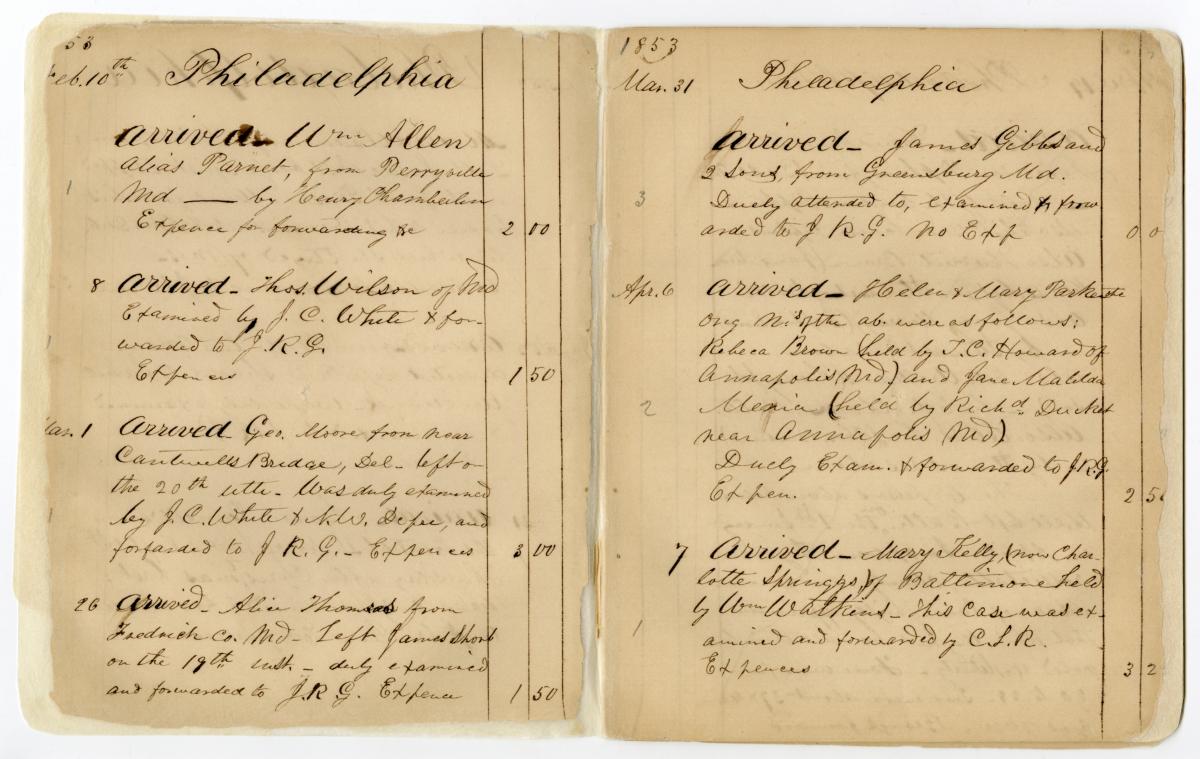 53
Feb. 10th Philadelphia
Arrived - Wm Allen
alias Parnet, from Perryville
1 Md — by Henry Chamberlin
Expence for forwarding &c 2 00
8 Arrived - Thos. Wilson of Md
Examined by J. C. White & for-
1 warded to J. R. G.
Expences 1 50
Mar. 1 Arrived Geo. Moore from near
Cantwells Bridge, Del - left on
the 20th ulto - Was duly examined
1 by J. C. White & N. W. Depee, and
forfarded to J R. G. - Expences 3 00
26 Arrived - Alice Thomas from
Fredrick Co. Md - Left James Short
on the 19th inst. - duly examined
and forwarded to J. R G. Expence 1 50
1853
Mar. 31 Philadelphia
Arrived - James Gibbs and
2 sons, from Greensburg Md.
3 Duely attended to, examined & frow
arded to J R. G. No Exp 0 0
Apr. 6 Arrived - Helen & Mary Parker the
Orig Ns of the ab. were as follows:
Rebeca Brown (held by T. C. Howard of
Annapolis Md) and Jane Matilda
2 (held by Richd. Ducket
near Annapolis Md)
Duely Exam. & forwarded to J. R. G.
Expen. 2 5
7 Arrived - Mary Kelly, (now Char-
lotte Spriggs,) of Baltimore held
by Wm Watkins - This case was ex-
1 amined and forwarded by C. L. R.
Expences 3 2